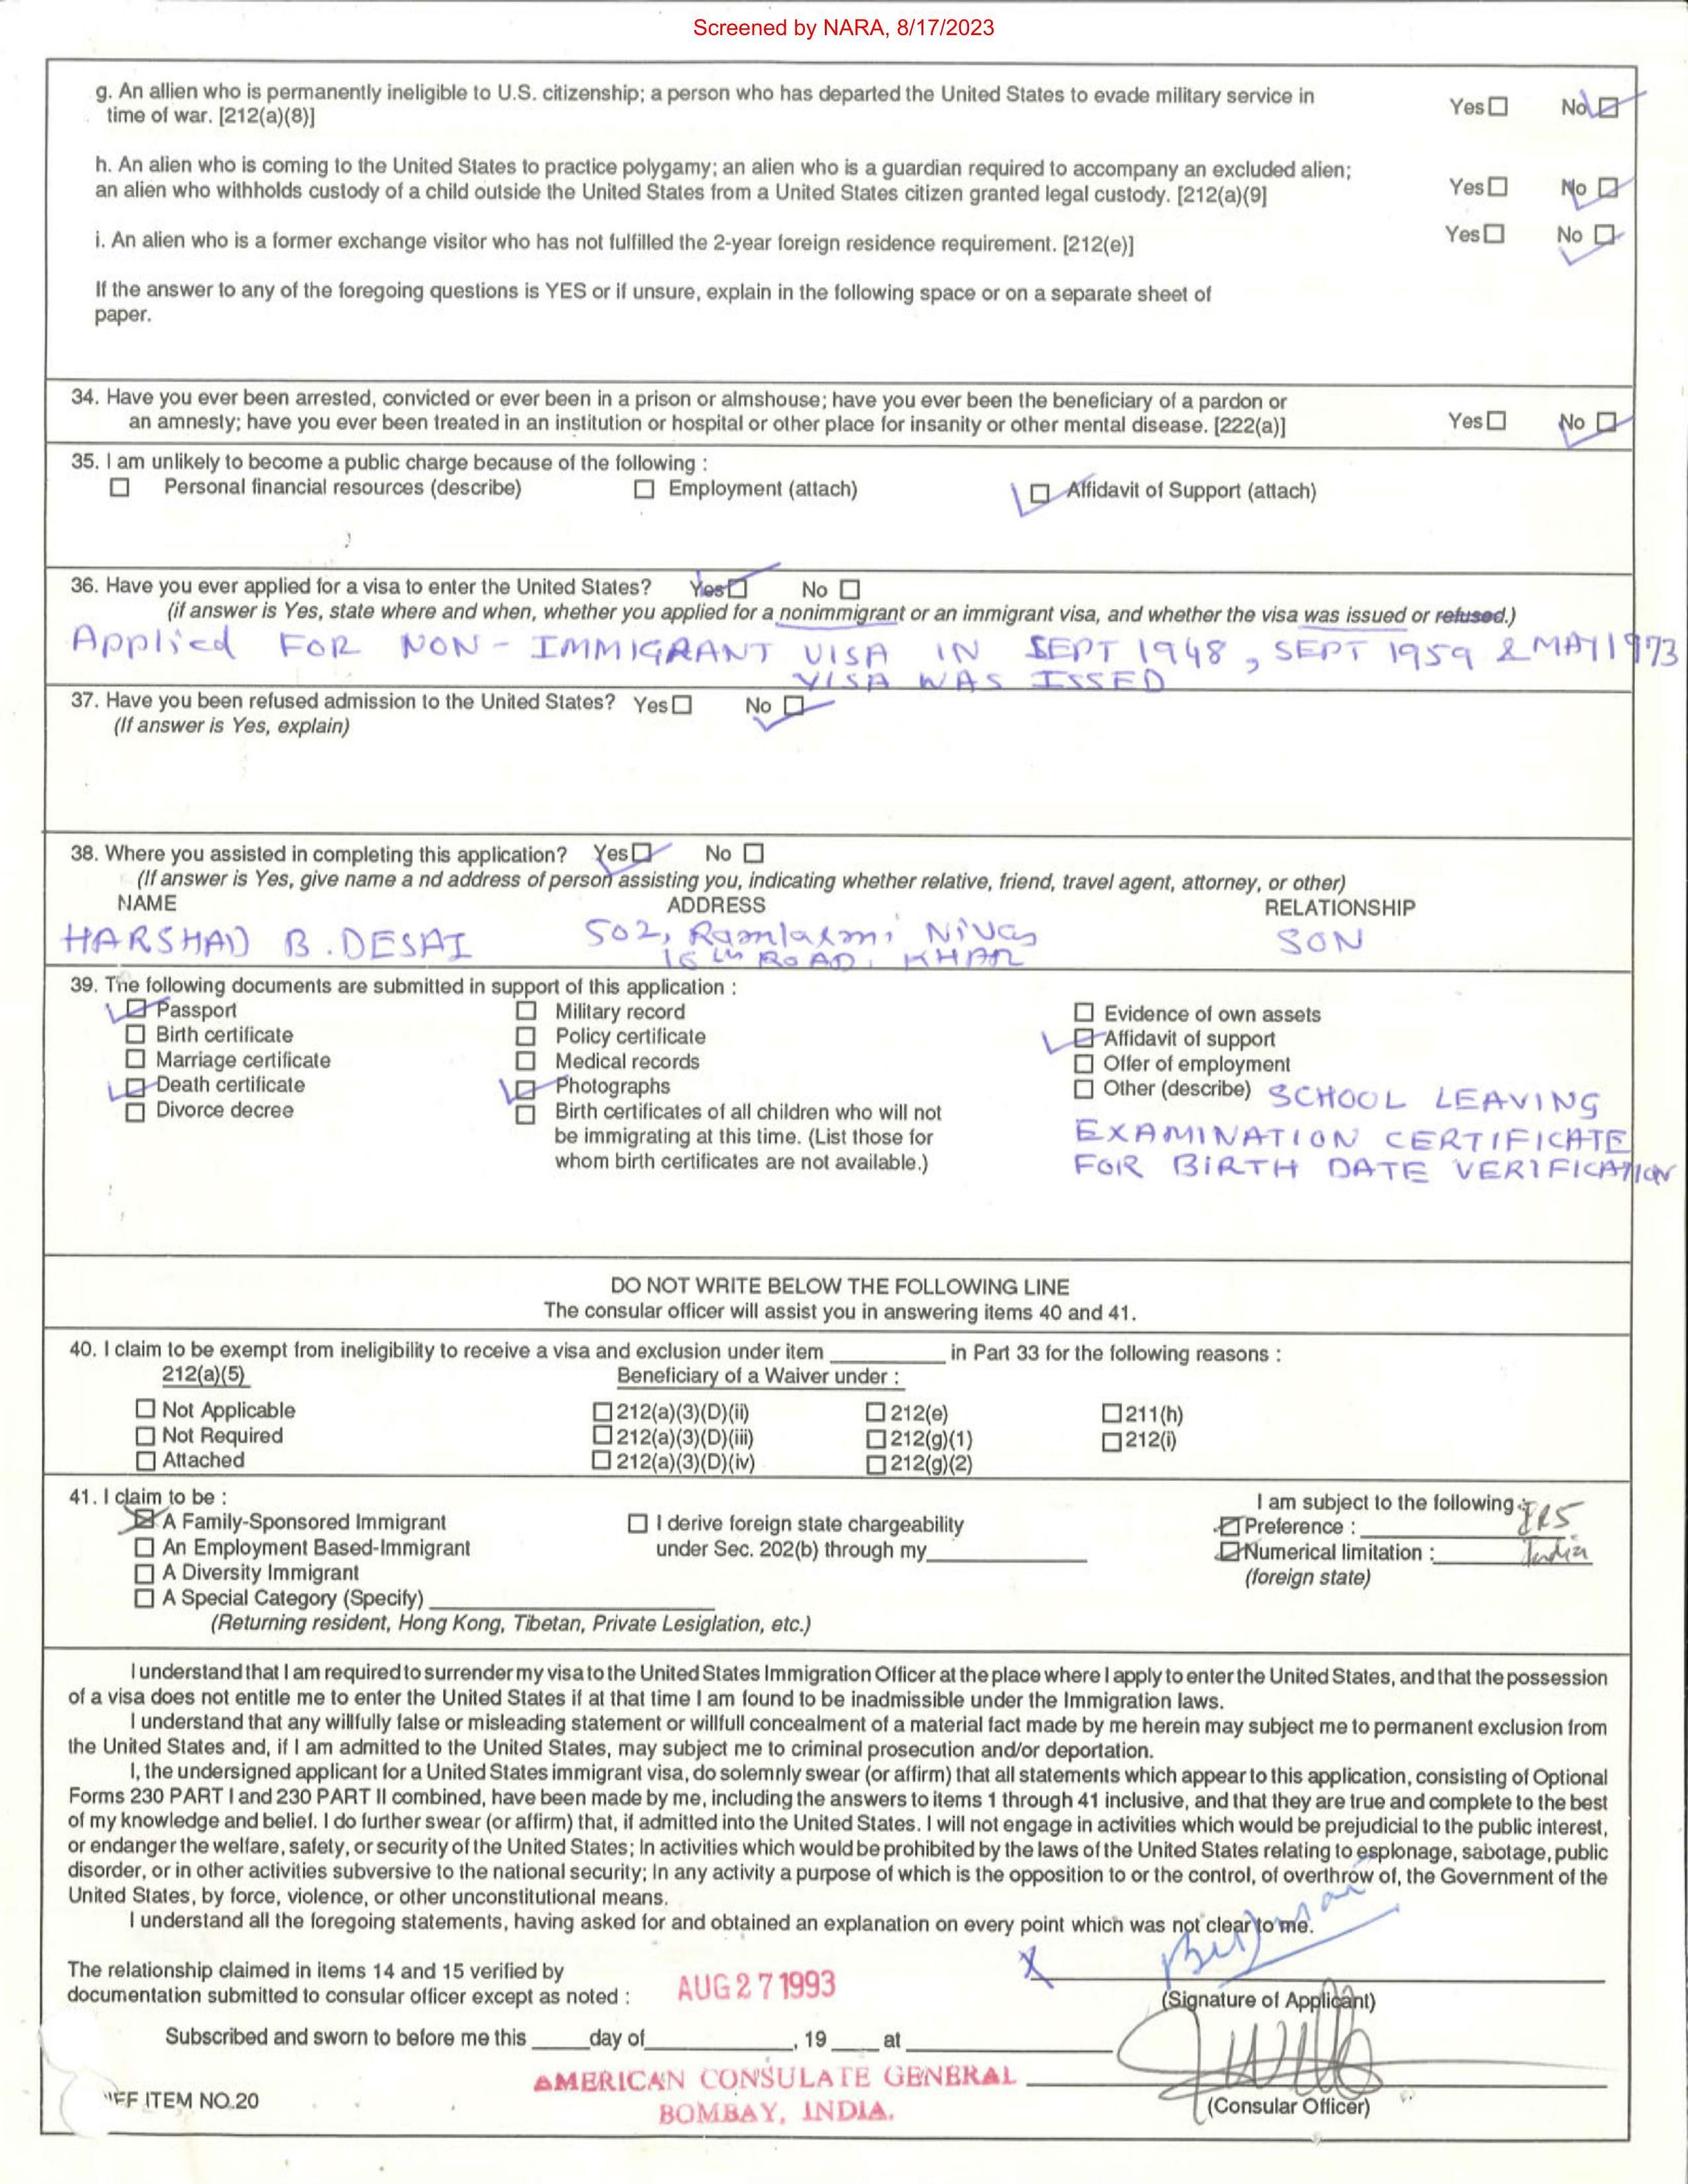 Screened by NARA, 8/17/2023
g. An allien who is permanently ineligible to U.S. citizenship; a person who has departed the United States to evade military service in
time of war. [212(a)(8)]
Yes☐ No☐
h. An alien who is coming to the United States to practice polygamy; an alien who is a guardian required to accompany an excluded alien;
an alien who withholds custody of a child outside the United States from a United States citizen granted legal custody. [212(a)(9]
Yes☐ No ☐
i. An alien who is a former exchange visitor who has not fulfilled the 2-year foreign residence requirement. [212(e)]
Yes☐ No ☐
If the answer to any of the foregoing questions is YES or if unsure, explain in the following space or on a separate sheet of
paper.
34. Have you ever been arrested, convicted or ever been in a prison or almshouse; have you ever been the beneficiary of a pardon or
an amnesty; have you ever been treated in an institution or hospital or other place for insanity or other mental disease. [222(a)]
Yes☐ No ☐
35. I am unlikely to become a public charge because of the following :
☐ Personal financial resources (describe) ☐ Employment (attach) ☐ Affidavit of Support (attach)
36. Have you ever applied for a visa to enter the United States? Yes☐ No ☐
(if answer is Yes, state where and when, whether you applied for a nonimmigrant or an immigrant visa, and whether the visa was issued or refused.)
Applied FOR NON-IMMIGRANT VISA IN SEPT 1948, SEPT 1959 & MAY 1973
VISA WAS ISSED
37. Have you been refused admission to the United States? Yes☐ No ☐
(If answer is Yes, explain)
38. Where you assisted in completing this application? Yes☐ No ☐
(If answer is Yes, give name a nd address of person assisting you, indicating whether relative, friend, travel agent, attorney, or other)
NAME ADDRESS RELATIONSHIP
HARSHAD B. DESAI 502, Ramlaxmi Nivas SON
16 th ROAD, KHAR
39. The following documents are submitted in support of this application :
☐ Passport ☐ Military record ☐ Evidence of own assets
☐ Birth certificate ☐ Policy certificate ☐ Affidavit of support
☐ Marriage certificate ☐ Medical records ☐ Offer of employment
☐ Death certificate ☐ Photographs ☐ Other (describe) SCHOOL LEAVING
☐ Divorce decree ☐ Birth certificates of all children who will not EXAMINATION CERTIFICATE
be immigrating at this time. (List those for FOR BIRTH DATE VERIFICATION
whom birth certificates are not available.)
DO NOT WRITE BELOW THE FOLLOWING LINE
The consular officer will assist you in answering items 40 and 41.
40. I claim to be exempt from ineligibility to receive a visa and exclusion under item ________ in Part 33 for the following reasons :
212(a)(5) Beneficiary of a Waiver under :
☐ Not Applicable ☐ 212(a)(3)(D)(ii) ☐ 212(e) ☐ 211(h)
☐ Not Required ☐ 212(a)(3)(D)(iii) ☐ 212(g)(1) ☐ 212(i)
☐ Attached ☐ 212(a)(3)(D)(iv) ☐ 212(g)(2)
41. I claim to be : I am subject to the following :
☒ A Family-Sponsored Immigrant ☐ I derive foreign state chargeability ☐ Preference : IR5
☐ An Employment Based-Immigrant under Sec. 202(b) through my________ ☐ Numerical limitation : India
☐ A Diversity Immigrant (foreign state)
☐ A Special Category (Specify)________
(Returning resident, Hong Kong, Tibetan, Private Lesiglation, etc.)
I understand that I am required to surrender my visa to the United States Immigration Officer at the place where I apply to enter the United States, and that the possession
of a visa does not entitle me to enter the United States if at that time I am found to be inadmissible under the Immigration laws.
I understand that any willfully false or misleading statement or willfull concealment of a material fact made by me herein may subject me to permanent exclusion from
the United States and, if I am admitted to the United States, may subject me to criminal prosecution and/or deportation.
I, the undersigned applicant for a United States immigrant visa, do solemnly swear (or affirm) that all statements which appear to this application, consisting of Optional
Forms 230 PART I and 230 PART II combined, have been made by me, including the answers to items 1 through 41 inclusive, and that they are true and complete to the best
of my knowledge and belief. I do further swear (or affirm) that, if admitted into the United States. I will not engage in activities which would be prejudicial to the public interest,
or endanger the welfare, safety, or security of the United States; In activities which would be prohibited by the laws of the United States relating to esplonage, sabotage, public
disorder, or in other activities subversive to the national security; In any activity a purpose of which is the opposition to or the control, of overthrow of, the Government of the
United States, by force, violence, or other unconstitutional means.
I understand all the foregoing statements, having asked for and obtained an explanation on every point which was not clear to me.
The relationship claimed in items 14 and 15 verified by
documentation submitted to consular officer except as noted : AUG 27 1993 X
(Signature of Applicant)
Subscribed and sworn to before me this ____day of________, 19 ____ at ________
AMERICAN CONSULATE GENERAL
BOMBAY, INDIA.
FF ITEM NO.20 (Consular Officer)